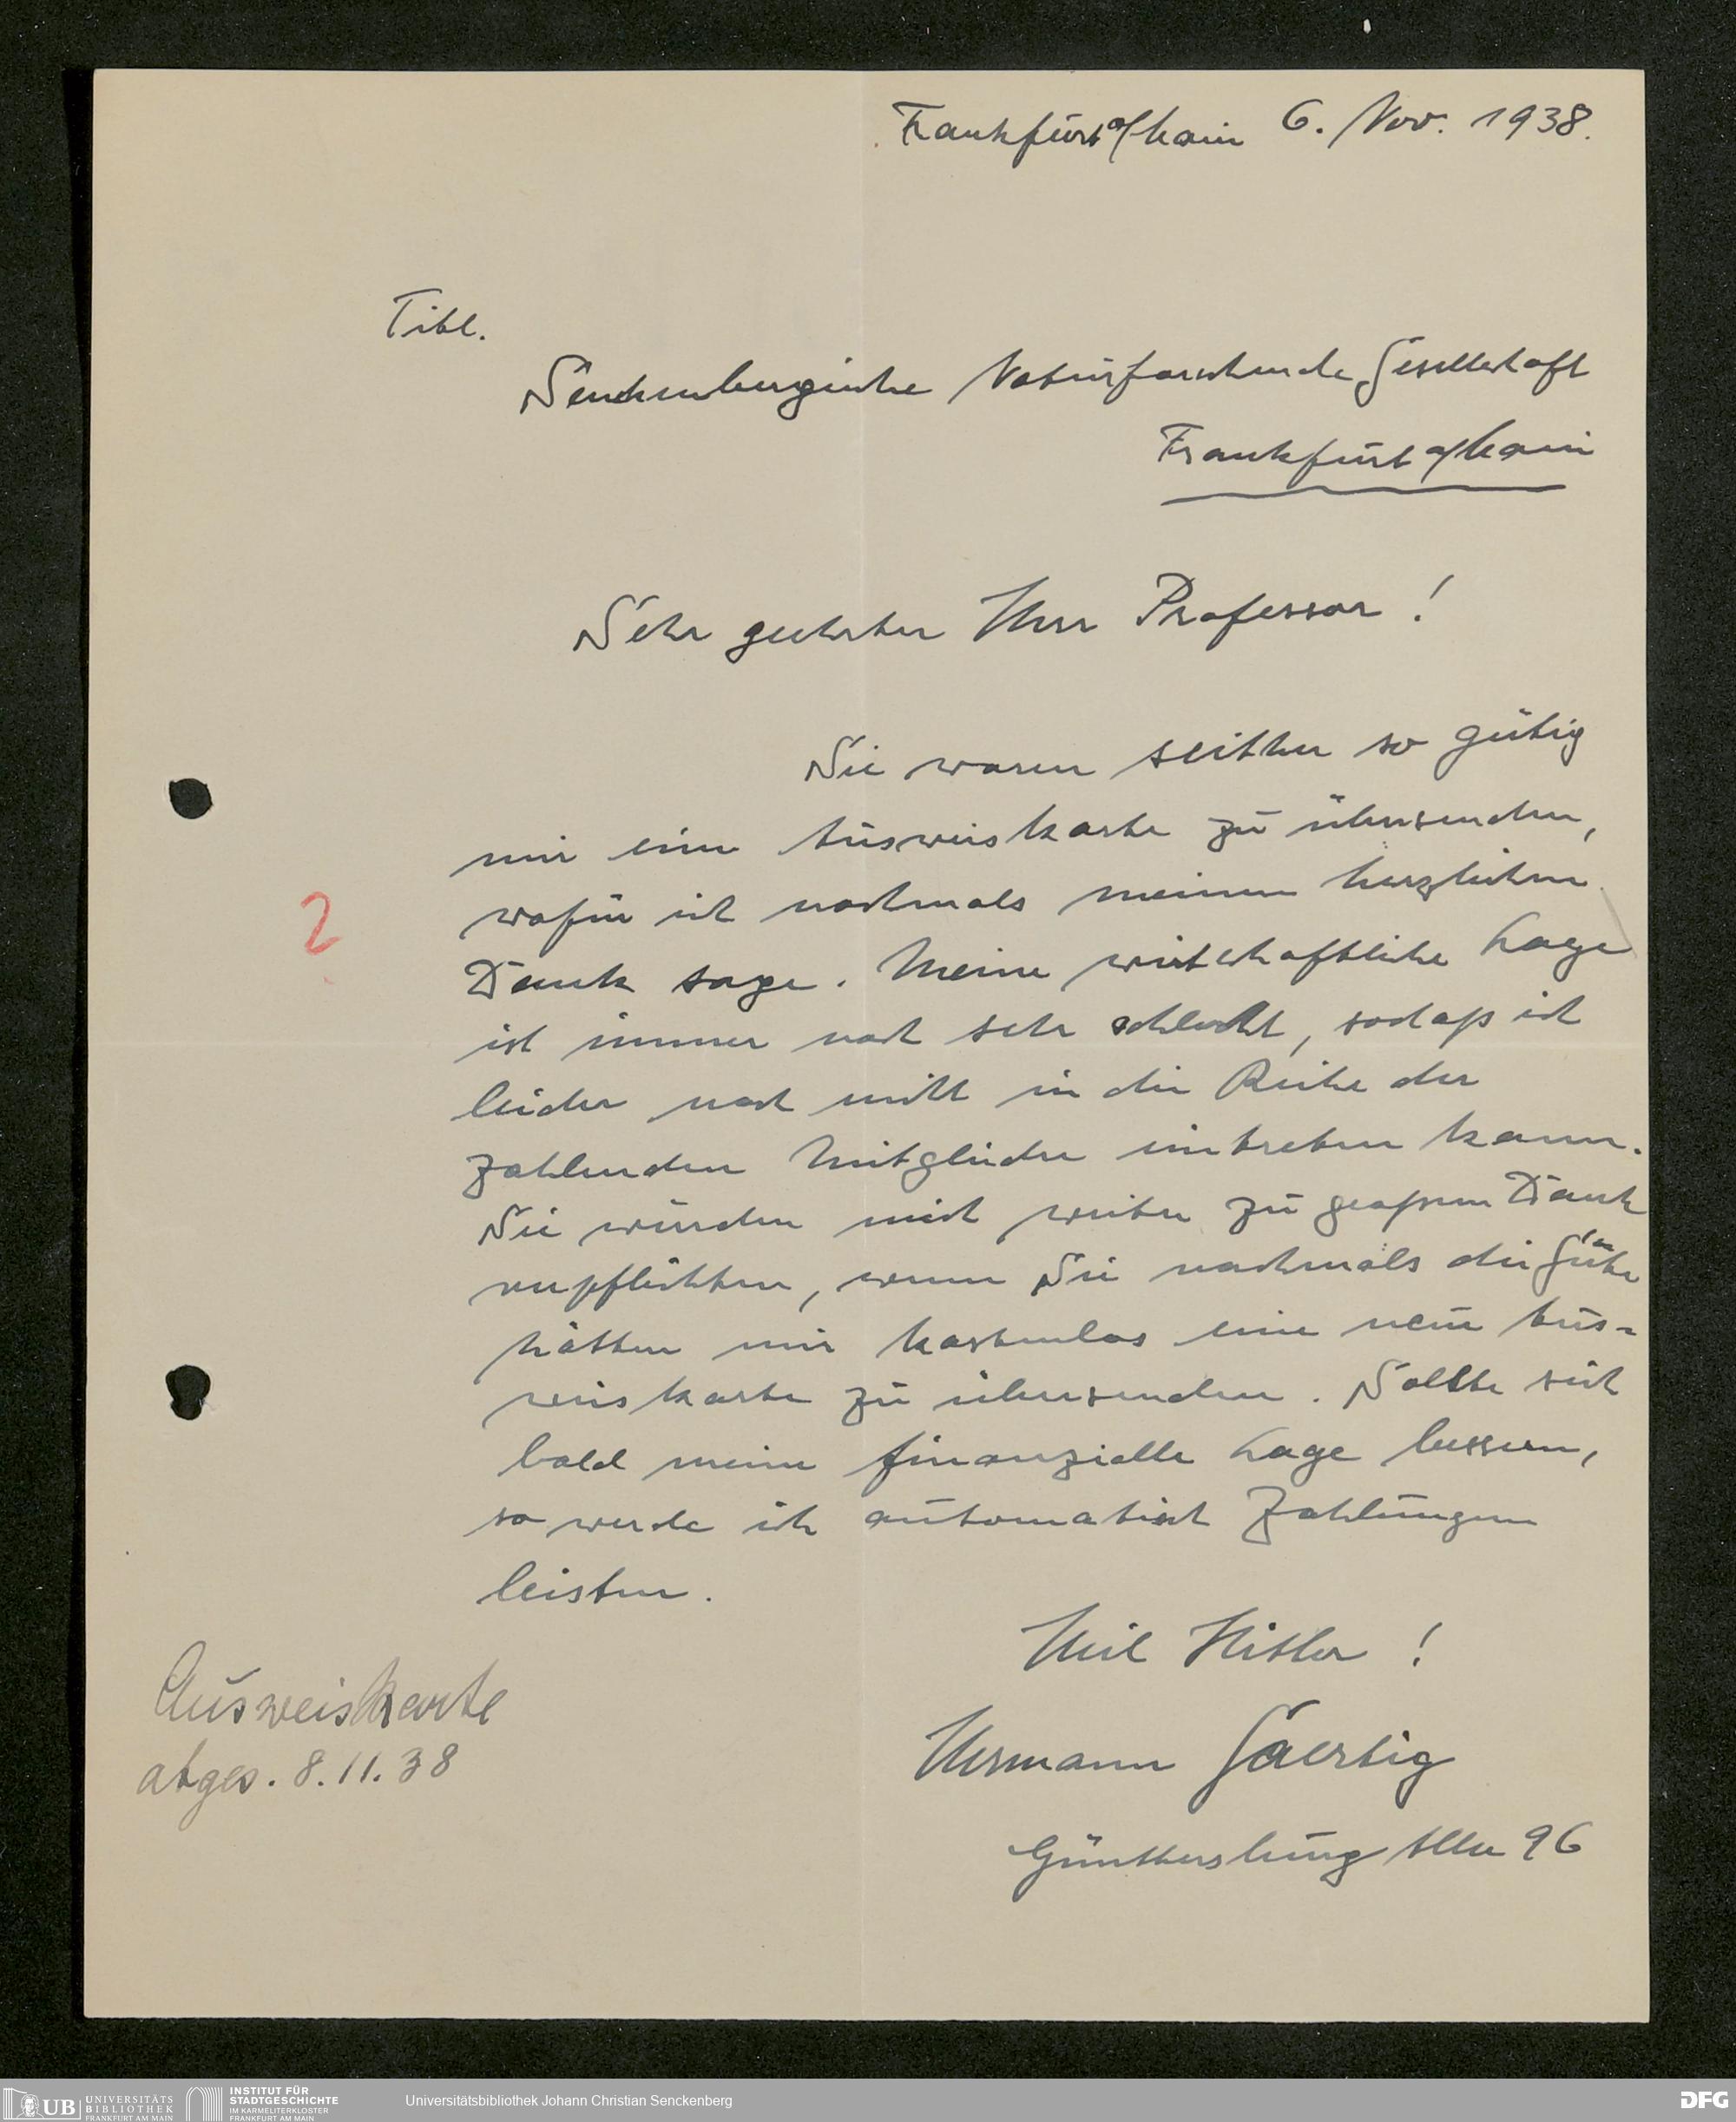 Frankfurt a/Main 6. Nov. 1938.
Titl.
Senckenbergische Naturforschende Gesellschaft
Frankfurt a/Main
Sehr geehrter Herr Professor!
Sie waren seither so gütig
mir eine Ausweiskarte zu übersenden,
wofür ich nochmals meinen herzlichen
Dank sage. Meine wirtschaftliche Lage
ist immer noch sehr schlecht, sodaß ich
leider noch nicht in die Reihe der
zahlenden Mitglieder eintreten kann.
Sie würden mich weiter zu großem Dank
verpflichten, wenn Sie nochmals die Güte
hätten mir kostenlos eine neue Aus-
weiskarte zu übersenden. Sollte sich
bald meine finanzielle Lage bessern,
so werde ich automatisch Zahlungen
leisten.
Heil Hitler!
Hermann Gaertig
Günthersburg Allee 96
2
Ausweiskarte
abges. 8.11.38
UB UNIVERSITÄTS
BIBLIOTHEK
FRANKFURT AM MAIN
INSTITUT FÜR
STADTGESCHICHTE
IM KARMELITERKLOSTER
FRANKFURT AM MAIN
Universitätsbibliothek Johann Christian Senckenberg
DFG